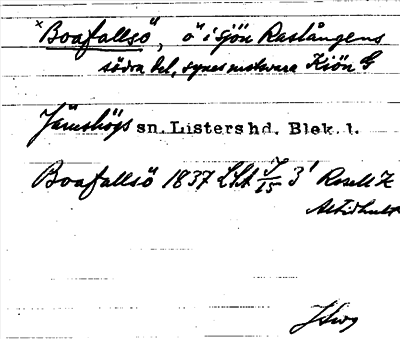 × Boafallsö, ö i sjön Raslångens
södra del, synes motsvara Kiön G
Jämshögs sn. Listers hd. Blek. l.
Boafallsö 1837 LSA J/15 3¹ Rosell Z